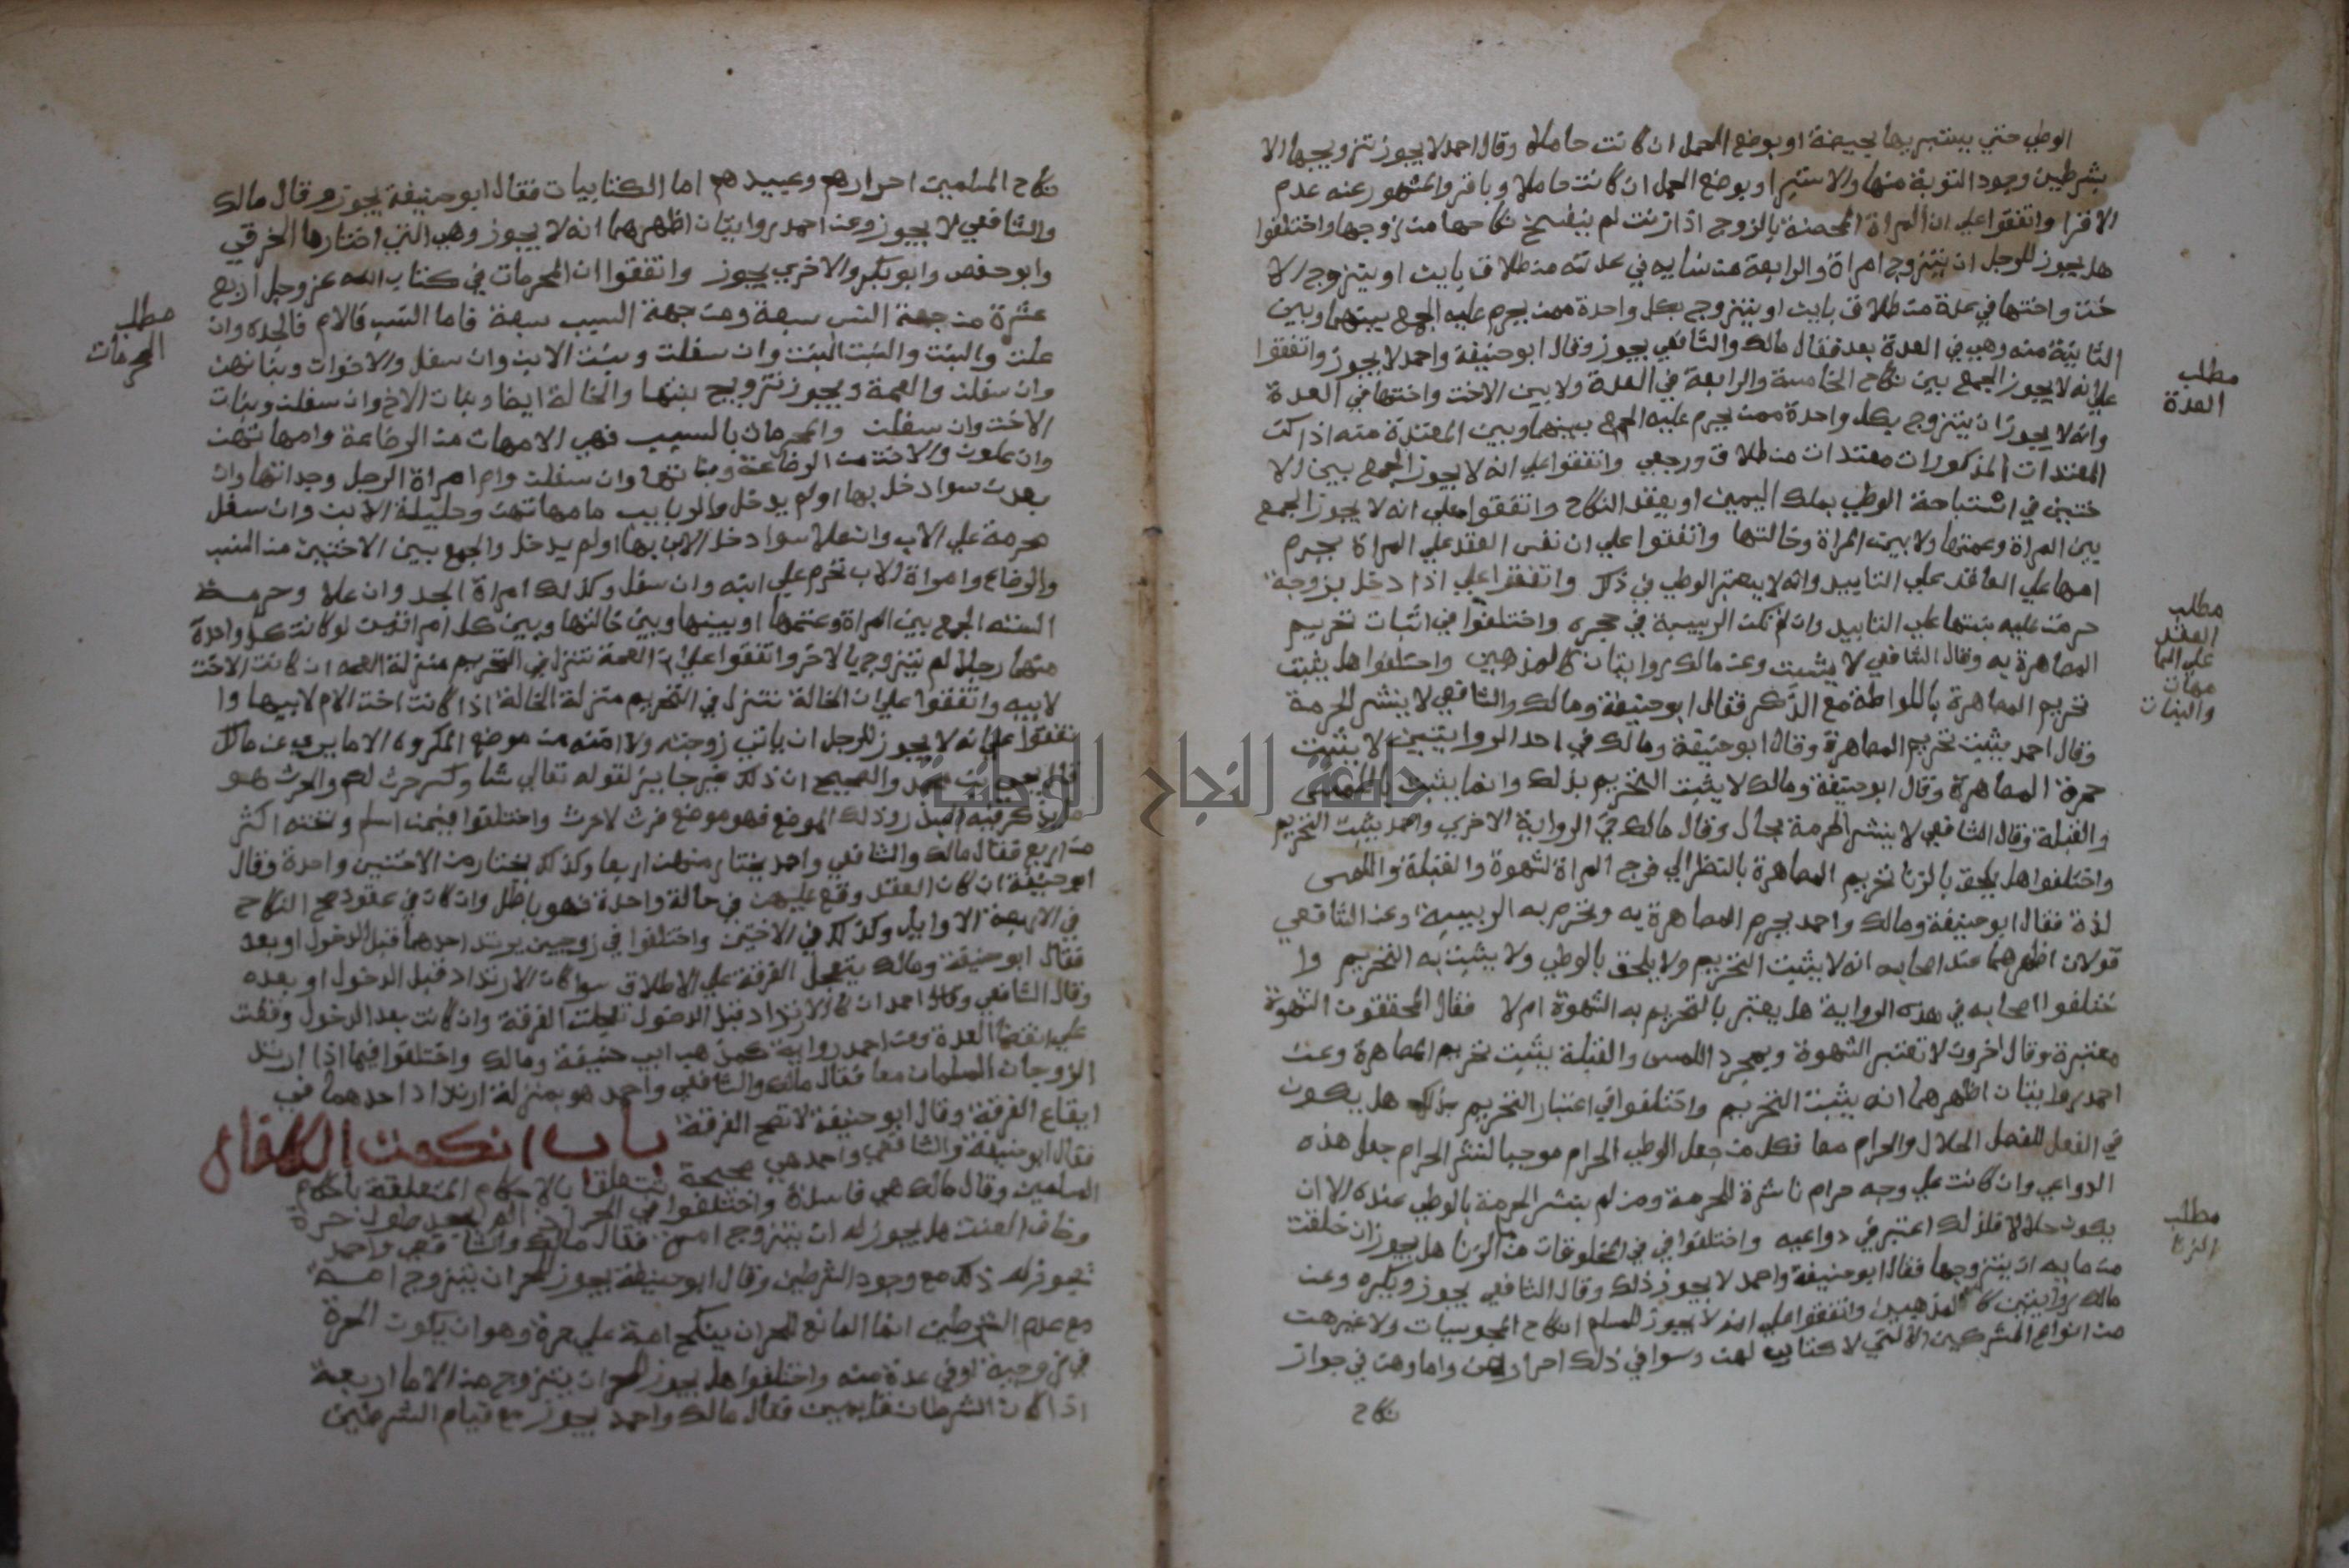 الوطي حتي يستبريها بحيضة او بوضع الحمل ان كانت حاملا وقال احمد لا يجوز تزويجها الا
بشرطين وجود التوبة منها والاستبرا بوضع الحمل ان كانت حاملا وبا والمشهور عنه عدم
الاقرا واتفقوا علي ان المراة المحصنة بالزوج اذا زنت لم ينفسخ نكاحها من زوجها واختلفوا
هل يجوز للرجل ان يتزوج امراة والرابعة من نسايه في عدته من طلاق باين او يتزوج الا
خت واختها في عدة من طلاق باين او يتزوج بكل واحدة ممن يحرم عليه الجمع بينهما وبين
الثانية منه وهي في العدة بعد فقال مالك والشافعي يجوز وقال ابوحنيفة واحمد لا يجوز واتفقوا
علي انه لا يجوز الجمع بين نكاح الخامسة والرابعة في العدة ولا بين الاخت واختها في العدة
وانه لا يجوز ان يتزوج بكل واحدة ممن يحرم عليه الجمع بينهما وبين المعتدة منه اذا كن
المعتدات المذكورات معتدات من طلاق ورجعي واتفقوا علي انه لا يجوز الجمع بين الا
ختين في اشتباحة الوطي بملك اليمين او بعقد النكاح واتفقوا علي انه لا يجوز الجمع
بين المراة وعمتها ولا بين المراة وخالتها واتفقوا علي ان نفس العقد علي المراة يحرم
امها علي العاقد علي التابيد وانه لا يعتبر الوطي في ذلك واتفقوا علي اذا دخل بزوجة
حرمت عليه بنتها علي التابيد وان لم تكن الربيبة في حجره واختلفوا في اثبات تحريم
المصاهرة به وقال الشافعي لا يثبت وعن مالك روايتان كالمذهبين واختلفوا هل يثبت
تحريم المصاهرة باللواطة مع الذكر فقال ابوحنيفة ومالك والشافعي لا ينشر الحرمة
وقال احمد يثبت تحريم المصاهرة وقال ابوحنيفة ومالك في احد الروايتين لا يثبت
حمرة المصاهرة وقال ابوحنيفة ومالك لا يثبت التحريم بذلك وانما يثبت باللمس
والقبلة وقال الشافعي لا ينشر الحرمة بحال وقال مالك في الرواية الاخري واحمد يثبت التحريم
واختلفوا هل يلحق بالزنا تحريم المصاهرة بالنظر الي فرج المراة لشهوة والقبلة واللمس
لذة فقال ابوحنيفة ومالك واحمد يحرم المصاهرة به وتحرم به الربيبة وعن الشافعي
قولان اظهرهما عند اصحابه انه لا يثبت التحريم ولا يلحق بالوطي ولا يثبت به التحريم وا
ختلفوا اصحابه في هذه الرواية هل يعتبر بالتحريم به الشهوة ام لا فقال المحققون الشهوة
معتبرة وقال اخرون لا تعتبر الشهوة وبمجرد اللمس والقبلة يثبت تحريم المصاهرة وعن
احمد روايتان اظهرهما انه يثبت التحريم واختلفوا في اعتبار التحريم بذلك هل يكون
في الفعل للفصل الحلال والحرام معا فكل من جعل الوطي الحرام موجبا لنشر الحرام جعل هذه
الدواعي وان كانت علي وجه حرام ناشرة للحرمة ومن لم ينشر الحرمة بالوطي عنده الا ان
يكون حلالا فلذلك اعتبر في دواعيه واختلفوا في في المخلوقات من ما الزنا هل يجوز ان خلقت
من مايه ان يتزوجها فقال ابوحنيفة واحمد لا يجوز ذلك وقال الشافعي يجوز ويكره وعن
مالك روايتين كالمذهبين واتفقوا علي انه لا يجوز للمسلم انكاح المجوسيات ولا غيرهن
من انواع المشركين الا التي لا كتاب لهن وسوا في ذلك احرارهن واماوهن في جواز
نكاح
مطلب
العدة
مطلب
العقد
علي الما
مهات
والبنات
مطلب
الزنا
نكاح المسلمين احرارهم وعبيدهم اما الكتابيات فقال ابوحنيفة يجوز وقال مالك
والشافعي لا يجوز وعن احمد روايتان اظهرهما انه لا يجوز وهي التي اختارها الخرقي
وابو حفص وابوبكر والاخري يجوز واتفقوا ان المحرمات في كتاب الله عز وجل اربع
عشرة من جهة النسب سبعة ومن جهة السبب سبعة فاما النسب فالام فالجدة وان
علت والبنت والبنت البنت وان سفلت وبنت الابن وان سفل والاخوات وبناتهن
وان سفلن والعمة ويجوز تزويج بنتها والخالة ايضا وبنات الاخ وان سفلن وبنات
الاخت وان سفلن والمحرمات بالسبب فهي الامهات من الرضاعة وامهاتهن
وان علون والاخت من الرضاعة وبناتها وان سفلت وام امراة الرجل وجداتها وان
بعدن سوا دخل بها او لم يدخل والربايب بامهاتهن وحليلة الابن وان سفل
محرمة علي الاب وان علا سوا دخل الابن بها او لم يدخل والجمع بين الاختين من النسب
والرضاع وامراة الاب تحرم علي ابنه وان سفل وكذلك امراة الجد وان علا وحرمت
السنه الجمع بين المراة وعمتها او بينها وبين خالتها وبين كل امراتين لو كانت كل واحدة
منها رجلا لم يتزوج بالاخر واتفقوا علي ان العمة تنزل في التحريم منزلة العمه ان كانت الاخت
لابيه واتفقوا علي ان الخالة تنزل في التحريم منزلة الخالة اذا كانت اخت الام لابيها وا
تفقوا علي انه لا يجوز للرجل ان ياتي زوجته ولا امته من موضع المكروه الا ما يروي عن مالك
والصحيح ان ذلك غير جايز لقوله تعالي نساوكم حرث لكم والحرث هو
الموضع فهو موضع فرث لا حرث واختلفوا فيمن اسلم وتحته اكثر
من اربع فقال مالك والشافعي واحمد يختار منهن اربعا وكذلك يختار من الاختين واحدة وقال
ابوحنيفة ان كان العقد وقع عليهن في حالة واحدة فهو باطل وان كان في عقود صح النكاح
في الاربعة الاوايل وكذلك في الاختين واختلفوا في زوجين يرتد احدهما قبل الدخول او بعد
فقال ابوحنيفة ومالك يتعجل الفرقة علي الاطلاق سوا كان الارتداد قبل الدخول او بعده
وقال الشافعي وقال احمد ان كان الارتداد قبل الدخول تعجلت الفرقة وان كانت بعد الدخول وقفت
علي انقضا العدة وعن احمد رواية كمذهب ابي حنيفة ومالك واختلفوا فيما اذا ارتد
الزوجان المسلمان معا فقال مالك والشافعي واحمد هو بمنزلة ارتداد احدهما في
ايقاع الفرقة وقال ابوحنيفة لا تصح الفرقة باب انكحت الكفار
فقال ابوحنيفة والشافعي واحمد هي صحيحة تتعلق بالاحكام المتعلقة باحكام
المسلمين وقال مالك هي فاسدة واختلفوا في الحر اذا لم يجد طول حرة
وخاف العنت هل يجوز له ان يتزوج امة فقال مالك والشافعي واحمد
يجوز له ذلك مع وجود الشرطين وقال ابوحنيفة يجوز للحر ان يتزوج امة
مع عدم الشرطين انما المانع للحر ان ينكح امة علي حرة وهو ان يكون الحرة
في زوجية او في عدة منه واختلفوا هل يجوز للحر ان يتزوج من الاما اربعة
اذا كان الشرطان قايمين فقال مالك واحمد يجوز مع قيام الشرطين
مطلب
المحرمات
جامعة النجاح الوطنية